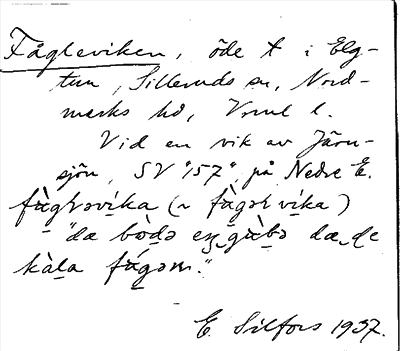 Fågleviken, öde t i Elg-
tun, Silleruds sn, Nord-
marks hd, Vrml l.
Vid en vik av Järn-
sjön, SV "157", på Nedre E.
fùgɫəvi̇ka (~ fàgəɫ vi̇ka)
"dæ bo̩də en gùbə dæ de
kàla fágəm."
E. Silfors 1937.